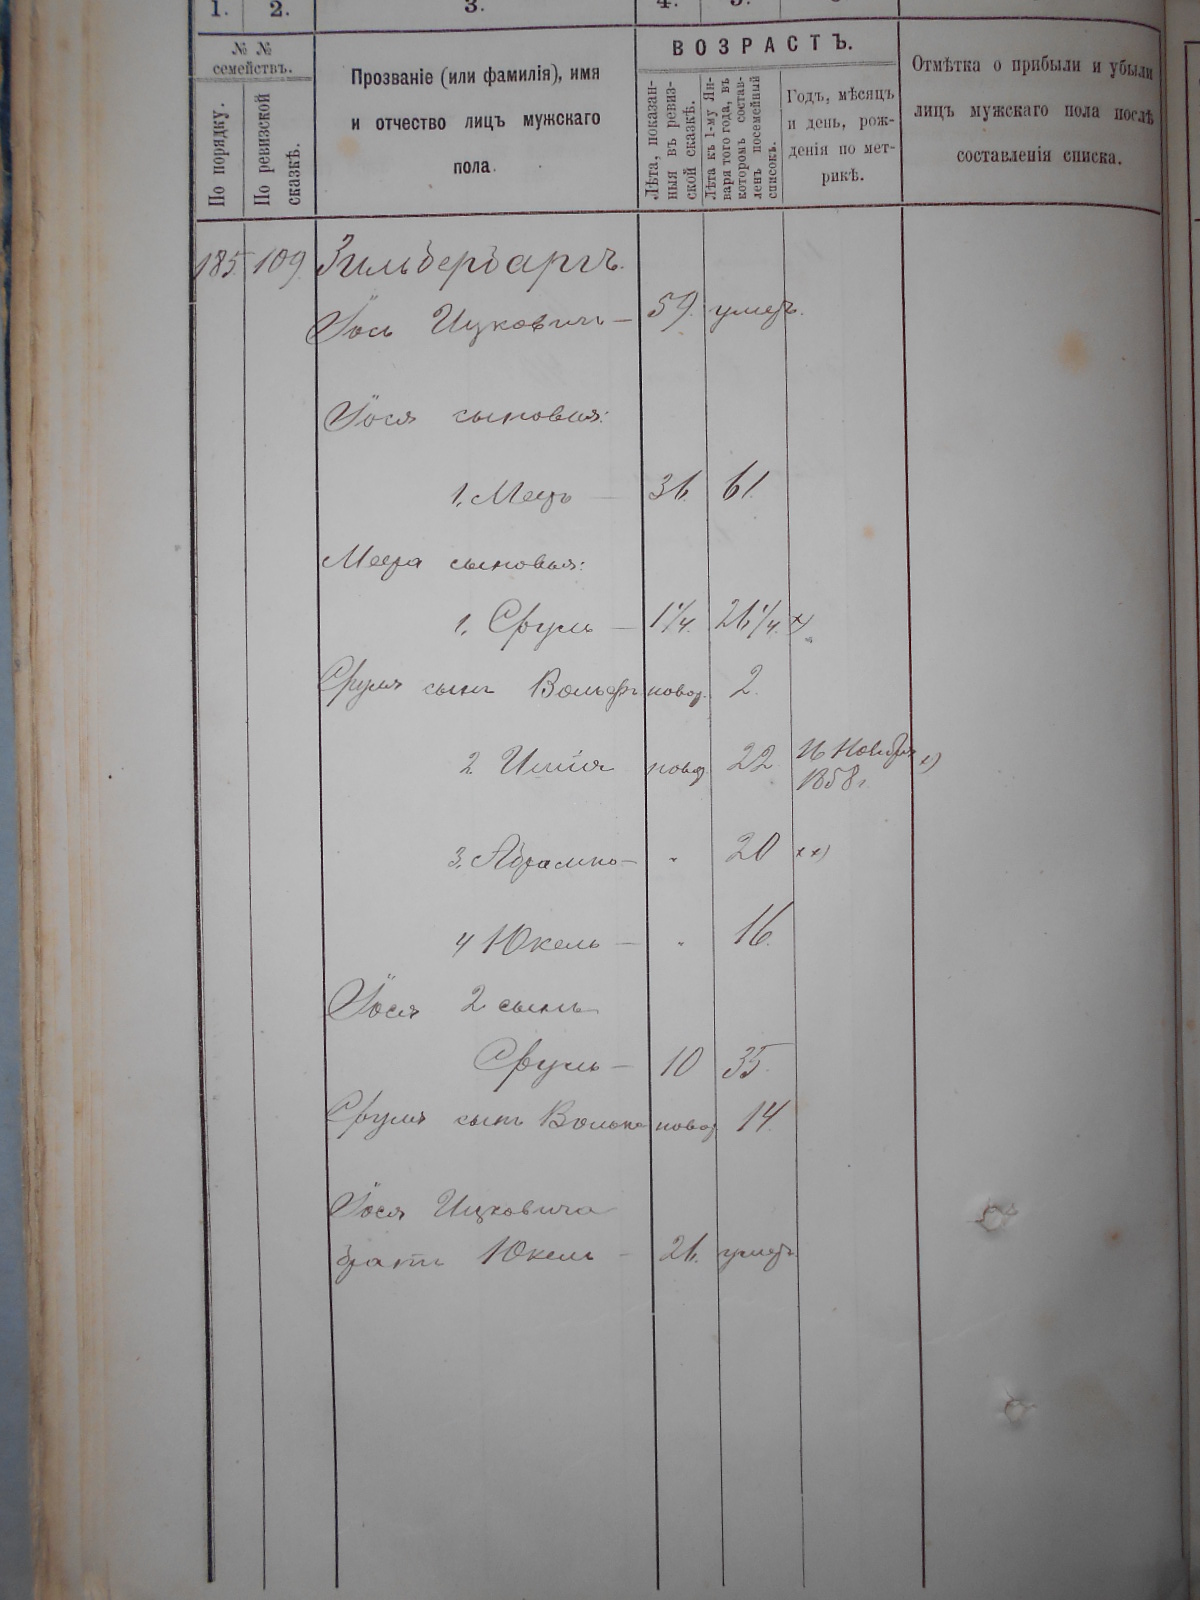 1. 2. 3. 4. 5.
№ №
семействъ.
По порядку.
По ревизской
сказкѣ.
Прозваніе (или фамилія), имя
и отчество лицъ мужскаго
пола.
ВОЗРАСТЪ.
Лѣта, показан-
ныя въ ревиз-
ской сказкѣ.
Лѣта къ 1-му Ян-
варя того года, въ
которомъ состав-
ленъ посемейный
списокъ.
Годъ, мѣсяцъ
и день, рож-
денія по мет-
рикѣ.
Отмѣтка о прибыли и убыли
лицъ мужскаго пола послѣ
составленія списка.
185. 109. Зильбербаргъ.
Іось Ицковичъ — 59. умеръ.
Іося сыновья:
1. Мееръ — 36. 61.
Меера сыновья:
1. Сруль — 1 1/4. 26 1/4. х)
Сруля сынъ Вольфъ новор. 2.
2. Ишія новор. 22. 16 Ноября х)
1858 г.
3. Абрамко — " 20 х х)
4 Юкель — " 16.
Іося 2 сынъ
Сруль — 10 35.
Сруля сынъ Волько новор 14.
Іося Ицковича
братъ Юкель — 26. умеръ.